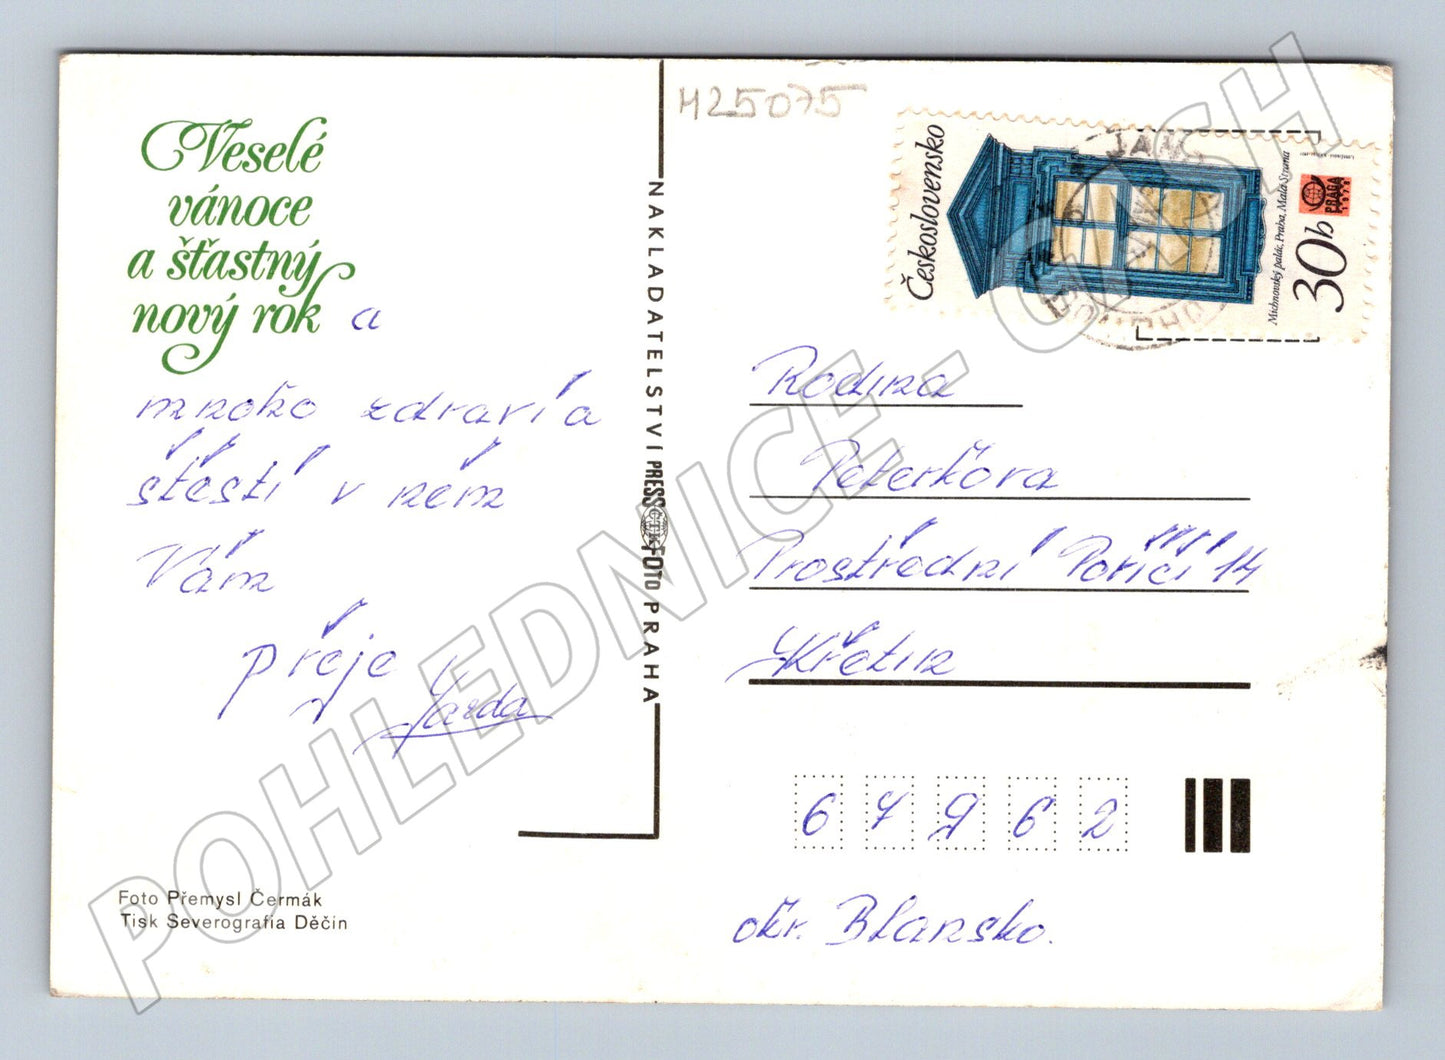 Veselé
vánoce
a šťastný
nový rok a
mnoho zdraví a
štěstí v něm
Vám
přeje
Jarda
Foto Přemysl Čermák
Tisk Severografia Děčín
NAKLADATELSTVÍ PRESSFOTO PRAHA
ČTK
H25075
Československo
Michnovský palác, Praha, Malá Strana
30h
PRAGA
1978
Rodina
Peterkova
Prostřední Poříčí 14
Křetín
67962
okr. Blansko.
POHLEDNICE - GASH